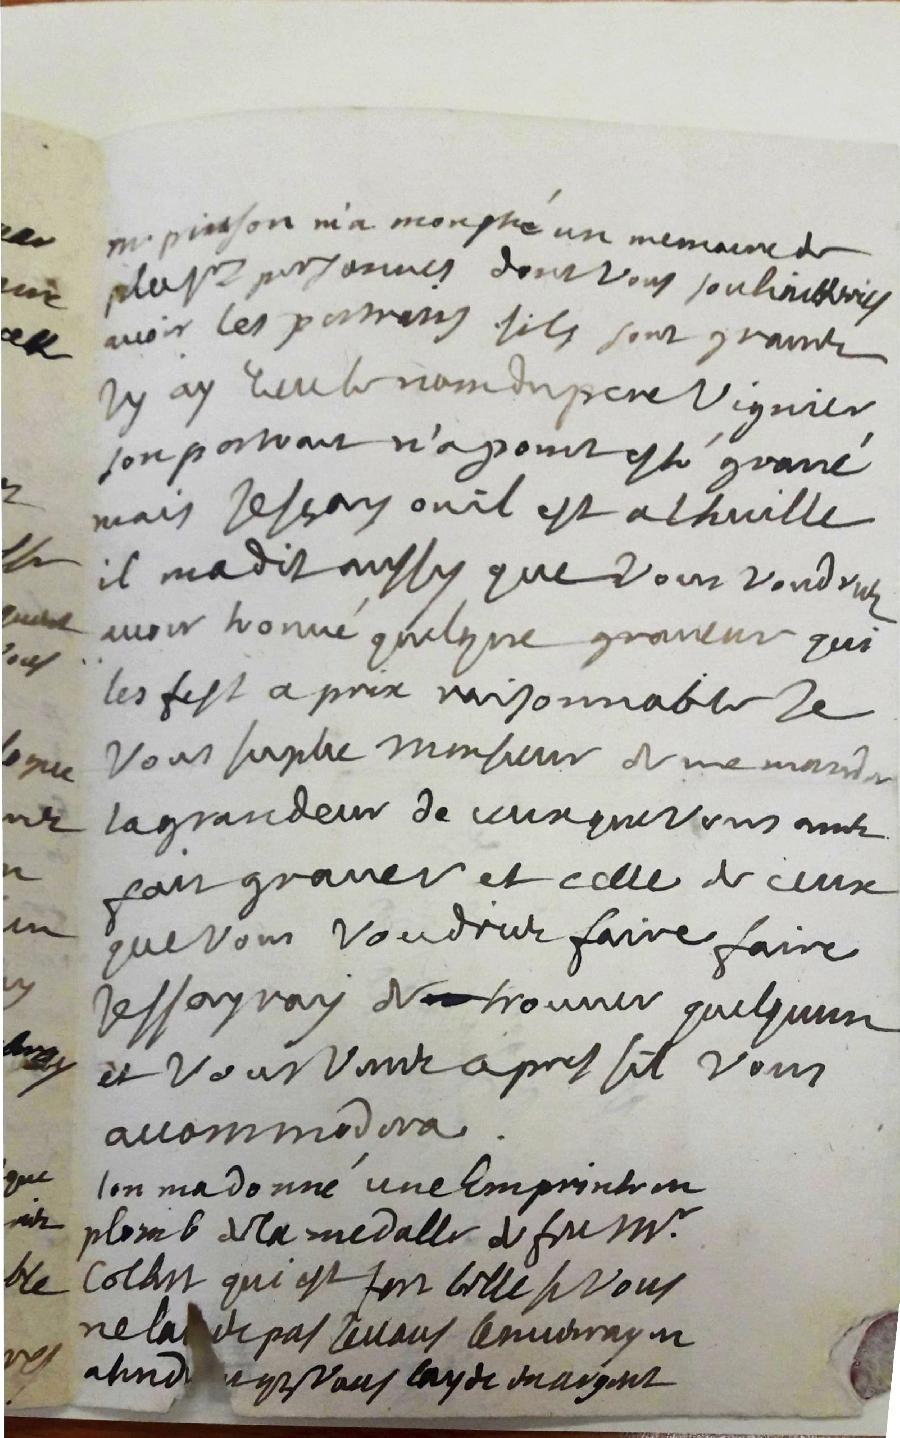 mr pinson m'a monstré un memoire de
plusrs personnes dont Vous souhaitteries
avoir les portraits sils sont gravez
Jy ay leu le nom du pere Vignier
son portrait n'a point esté gravé
mais Je sçay ou il est a lhuille
il ma dit aussy que Vous Voudriez
avoir trouvé quelque graveur qui
les fist a prix raisonnable Je
Vous suplie Monsieur de me mander
la grandeur de ceux que Vous avez
fait graver et celle de ceux
que Vous Voudriez faire faire
Jessayray de trouver quelquun
et Vous Verrez apres sil Vous
accommodera.
lon ma donné une Emprinte en
plomb de la medalle de feu Mr
Colbert qui est fort belle si Vous
ne pas Je Vous Lenvoyray en
Vous layez en argent